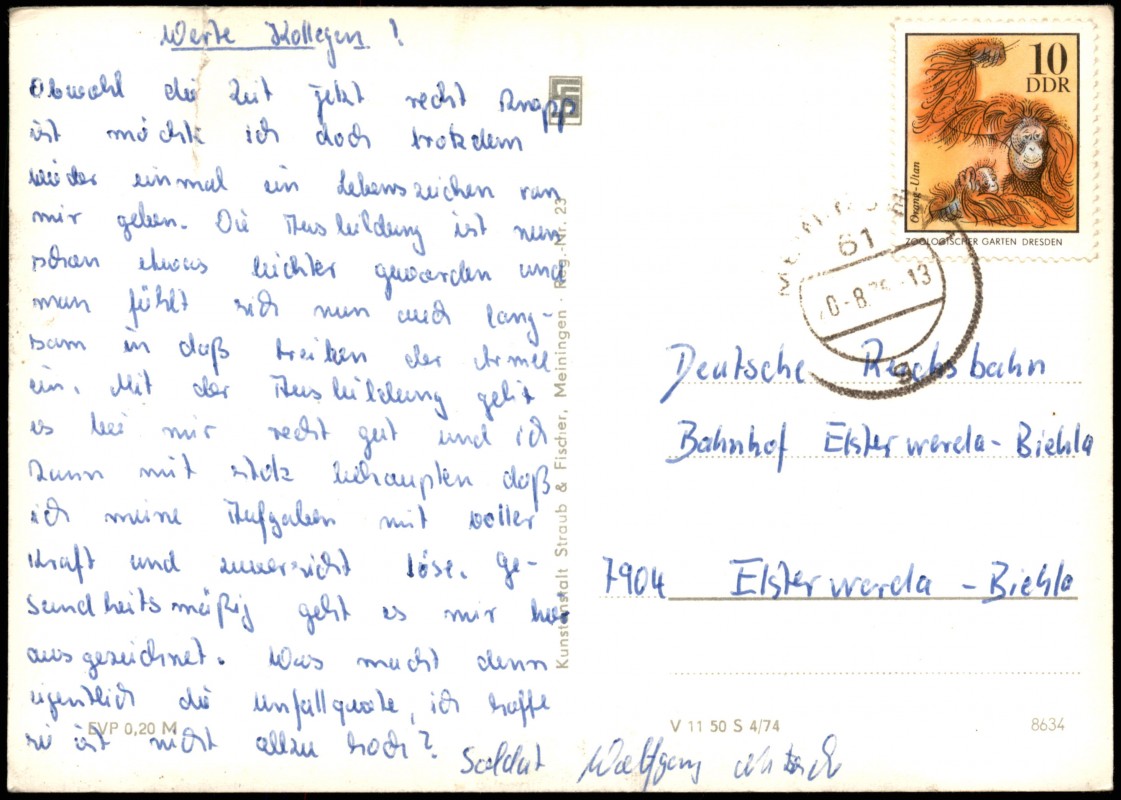 Werte Kollegen!
Obwohl die Zeit jetzt recht knapp
ist möchte ich doch trotzdem
wieder einmal ein Lebenszeichen von
mir geben. Die Ausbildung ist nun
schon etwas leichter geworden und
man fühlt sich nun auch lang-
sam in daß treiben der Armee
ein. Mit der Ausbildung geht
es bei mir recht gut und ich
kann mit stolz behaupten daß
ich meine Aufgaben mit voller
Kraft und zuversicht löse. Ge-
sundheitsmäßig geht es mir hier
ausgezeichnet. Was macht denn
eigentlich die Unfallquote, ich hoffe
sie ist nicht allzu hoch?
Soldat Wolfgang
EVP 0,20 M
Kunstanstalt Straub & Fischer, Meiningen · Reg.-Nr. 23
10
DDR
Orang-Utan
ZOOLOGISCHER GARTEN DRESDEN
61
Deutsche Reichsbahn
Bahnhof Elsterwerda-Biehla
7904 Elsterwerda-Biehla
V 11 50 S 4/74
8634